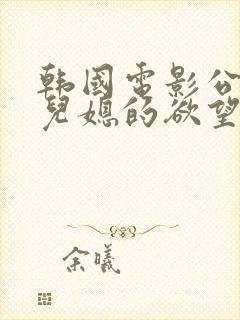 韩国电影公
儿媳的欲望
余曦